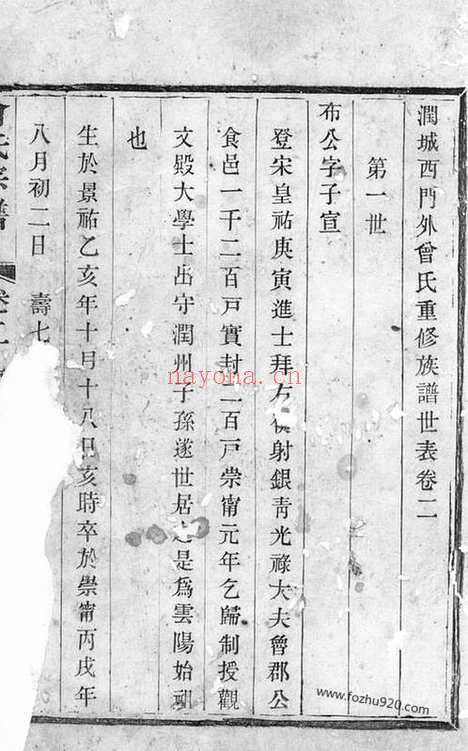 潤城西門外曾氏重修族譜世表卷二
第一世
布公字子宣
登宋皇祐庚寅進士拜右僕射銀青光祿大夫魯郡公
食邑一千二百戸實封二百戸崇甯元年乞歸制授觀
文殿大學士出守潤州子孫遂世居是爲雲陽始祖
也
生於景祐乙亥年十月十八日亥時卒於崇甯丙戌年
八月初二日 壽七
氏宗譜
卷二
nayona.cn
www.fozhu920.com